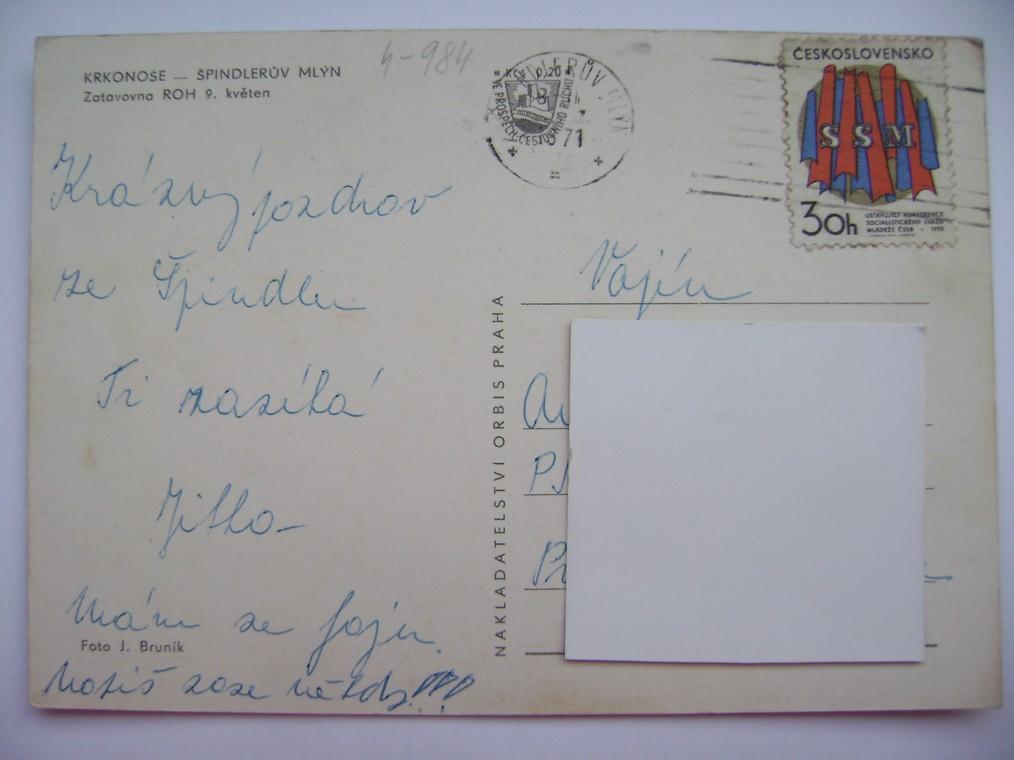 KRKONOSE — ŠPINDLERŮV MLÝN
Zotavovna ROH 9. květen
4-984
ŠPINDLERŮV MLÝN
KČS 0,20
VE PROSPĚCH CESTOVNÍHO RUCHU
71
ČESKOSLOVENSKO
SSM
30h
USTAVUJÍCÍ KONFERENCE
SOCIALISTICKÉHO SVAZU
MLÁDEŽE ČSSR - 1970
Krásný pozdrav
ze Špindlu
Ti zasílá
Jitka
Mám se fajn.
Foto J. Bruník
NAKLADATELSTVÍ ORBIS PRAHA